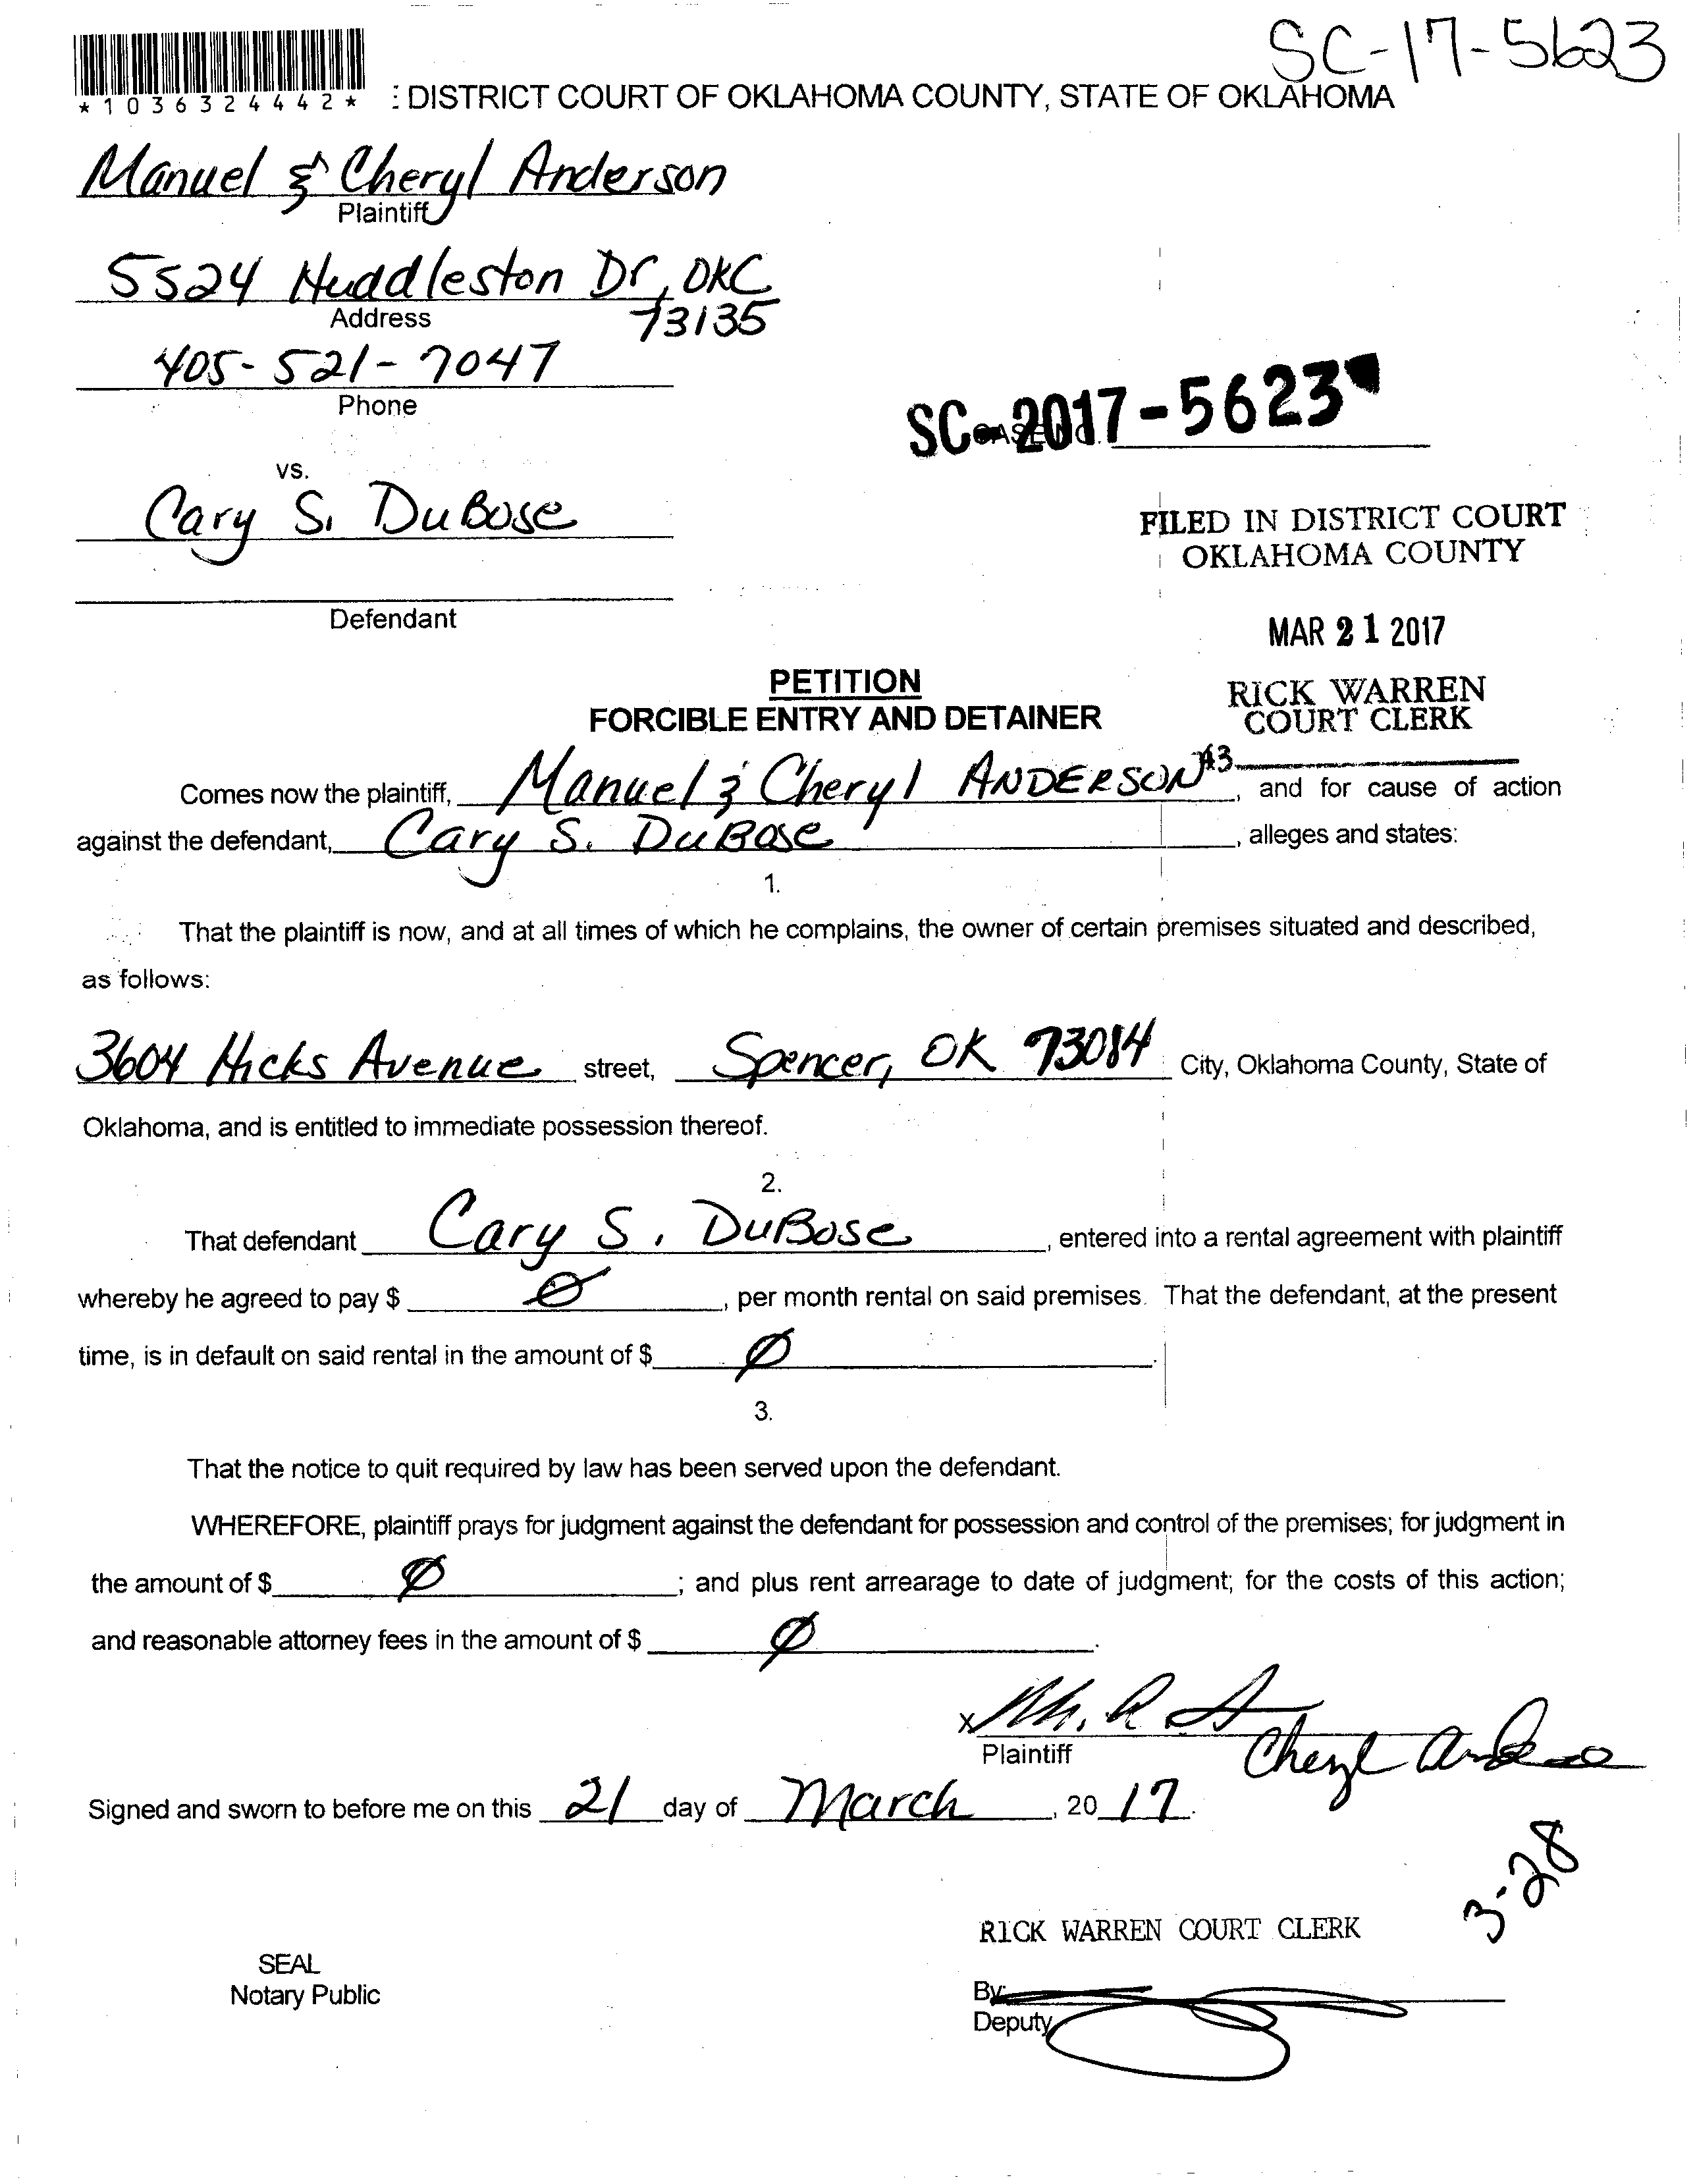 SC-17-5623
*1036324442*
: DISTRICT COURT OF OKLAHOMA COUNTY, STATE OF OKLAHOMA
Manuel & Cheryl Anderson
Plaintiff
5524 Huddleston Dr, OKC
73135
Address
405-521-7047
Phone
SC-2017-5623
CASE NO.
vs.
Cary S. DuBose
Defendant
FILED IN DISTRICT COURT
OKLAHOMA COUNTY
MAR 21 2017
RICK WARREN
COURT CLERK
43
PETITION
FORCIBLE ENTRY AND DETAINER
Comes now the plaintiff, Manuel & Cheryl ANDERSON, and for cause of action
against the defendant, Cary S. DuBose, alleges and states:
1.
That the plaintiff is now, and at all times of which he complains, the owner of certain premises situated and described,
as follows:
3604 Hicks Avenue street, Spencer, OK 73084 City, Oklahoma County, State of
Oklahoma, and is entitled to immediate possession thereof.
2.
That defendant Cary S. DuBose, entered into a rental agreement with plaintiff
whereby he agreed to pay $ Ø, per month rental on said premises. That the defendant, at the present
time, is in default on said rental in the amount of $ Ø.
3.
That the notice to quit required by law has been served upon the defendant.
WHEREFORE, plaintiff prays for judgment against the defendant for possession and control of the premises; for judgment in
the amount of $ Ø; and plus rent arrearage to date of judgment; for the costs of this action;
and reasonable attorney fees in the amount of $ Ø.
x
Plaintiff
Cheryl Anderson
Signed and sworn to before me on this 21 day of March, 2017.
3-28
RICK WARREN COURT CLERK
SEAL
Notary Public
By:
Deputy